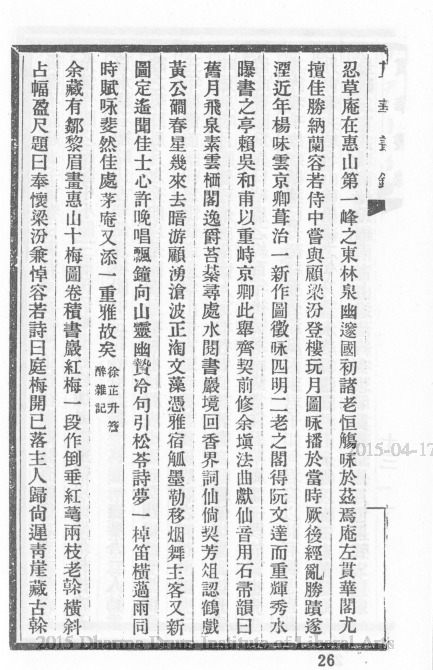 忍草庵在惠山第一峰之東林泉幽邃國初諸老恒觴咏於茲焉庵左貫華閣尤
擅佳勝納蘭容若侍中嘗與顧梁汾登樓玩月圖咏播於當時厥後經亂勝蹟遂
湮近年楊味雲京卿葺治一新作圖徵咏四明二老之閣得阮文達而重輝秀水
曝書之亭賴吳和甫以重峙京卿此舉齊契前修余塡法曲獻仙音用石帚韻曰
舊月飛泉素雲栖閣逸爵苔蓁尋處水閱書巖境回香界詞仙倘契芳俎認鶴戲
黃公礀春星幾來去暗游顧湧滄波正淘文藻憑雅宿觚墨勒移烟舞主客又新
圖定遙聞佳士心許晚唱飄鐘向山靈幽贊冷句引松苓詩夢一棹笛橫蓮雨同
時賦咏斐然佳處茅庵又添一重雅故矣徐芷升
醉雜記
余藏有鄒黎眉畫惠山十梅圖卷積書巖紅梅一段作倒垂紅萼兩枝老榦橫斜
占幅盈尺題曰奉懷梁汾兼悼容若詩曰庭梅開已落主人歸尙遲靑崖藏古榦
2015-04-17
2015 Dharma Drum Institute of Liberal Arts
26